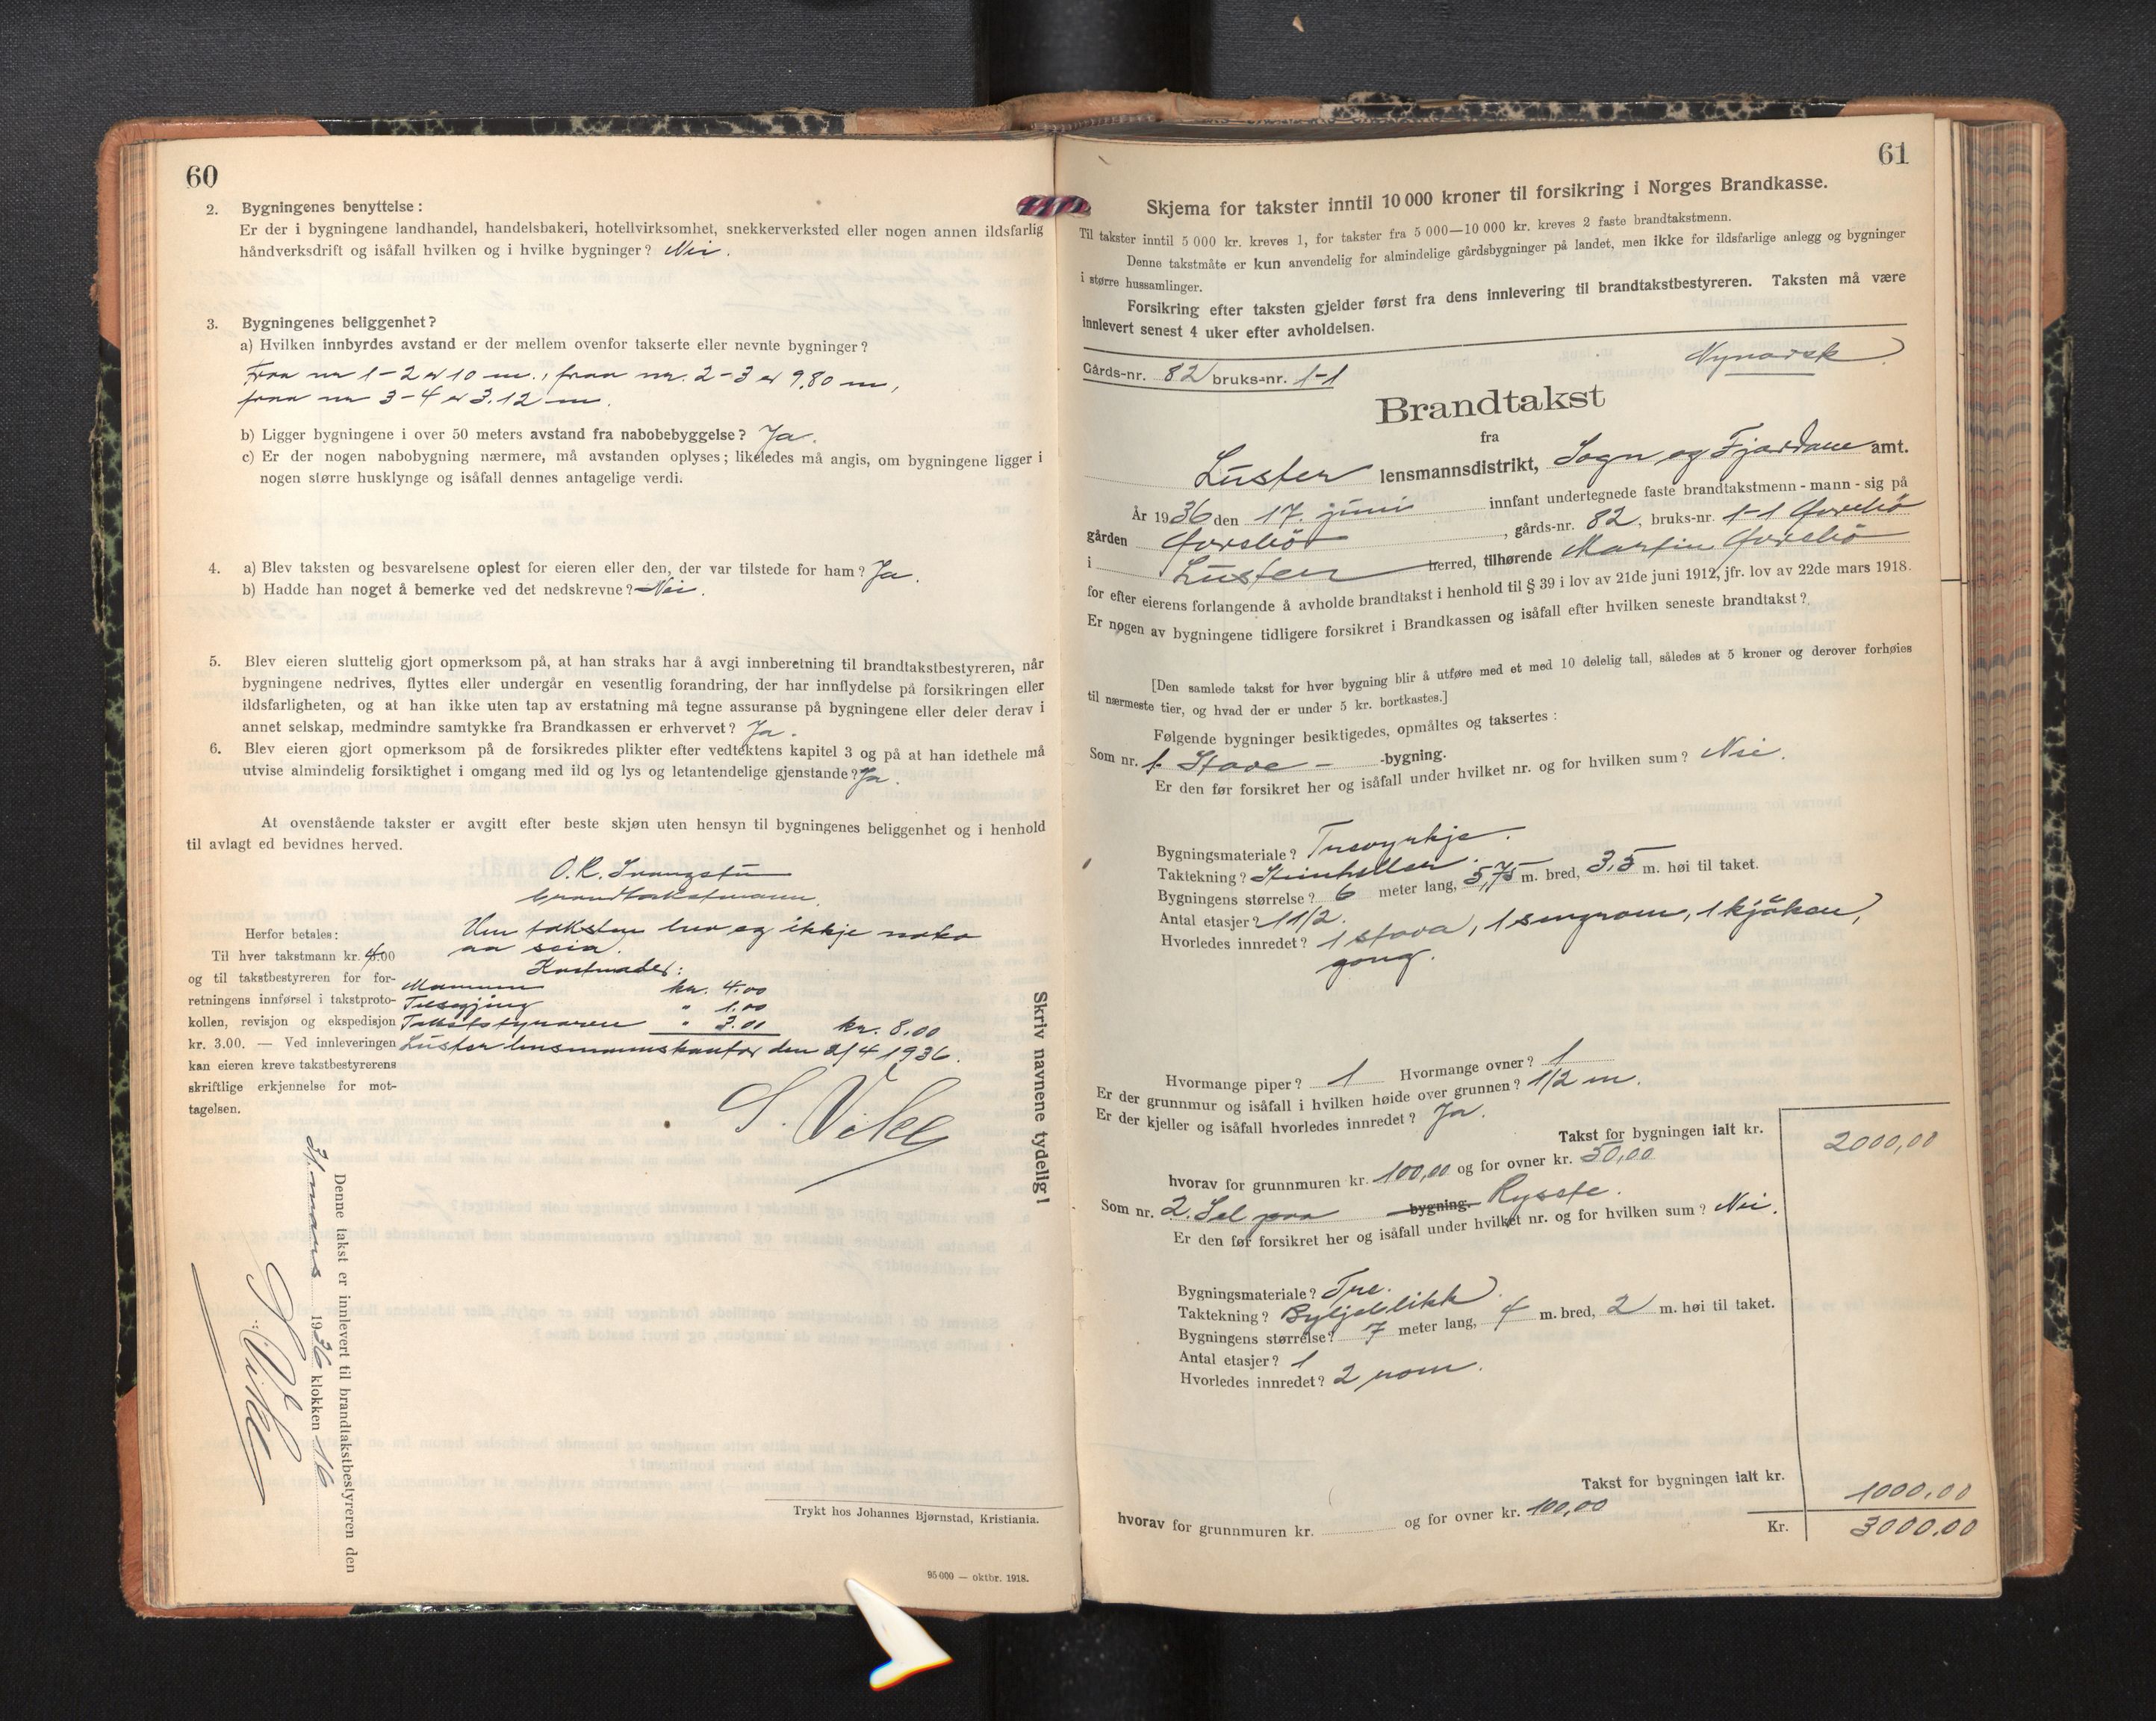 60
2. Bygningenes benyttelse:
Er der i bygningene landhandel, handelsbakeri, hotellvirksomhet, snekkerverksted eller nogen annen ildsfarlig
håndverksdrift og isåfall hvilken og i hvilke bygninger? Nei.
3. Bygningenes beliggenhet?
a) Hvilken innbyrdes avstand er der mellem ovenfor takserte eller nevnte bygninger?
Fraa nr 1-2 er 10 m., fraa nr. 2-3 er 9,80 m,
fraa nr 3-4 er 3.12 m.
b) Ligger bygningene i over 50 meters avstand fra nabobebyggelse? Ja.
c) Er der nogen nabobygning nærmere, må avstanden oplyses; likeledes må angis, om bygningene ligger i
nogen større husklynge og isåfall dennes antagelige verdi.
4. a) Blev taksten og besvarelsene oplest for eieren eller den, der var tilstede for ham? Ja.
b) Hadde han noget å bemerke ved det nedskrevne? Nei.
5. Blev eieren sluttelig gjort opmerksom på, at han straks har å avgi innberetning til brandtakstbestyreren, når
bygningene nedrives, flyttes eller undergår en vesentlig forandring, der har innflydelse på forsikringen eller
ildsfarligheten, og at han ikke uten tap av erstatning må tegne assuranse på bygningene eller deler derav i
annet selskap, medmindre samtykke fra Brandkassen er erhvervet? Ja.
6. Blev eieren gjort opmerksom på de forsikredes plikter efter vedtektens kapitel 3 og på at han idethele må
utvise almindelig forsiktighet i omgang med ild og lys og letantendelige gjenstande? Ja.
At ovenstående takster er avgitt efter beste skjøn uten hensyn til bygningenes beliggenhet og i henhold
til avlagt ed bevidnes herved.
O. R.
brandtakstmann.
Um taksten hev eg ikkje noko
aa seia.
Kostnader:
Herfor betales:
Til hver takstmann kr. 4.00
og til takstbestyreren for for-
retningens innførsel i takstproto-
kollen, revisjon og ekspedisjon
kr. 3.00. — Ved innleveringen
kan eieren kreve takstbestyrerens
skriftlige erkjennelse for mot-
tagelsen.
Mannen kr. 4.00
" 1.00
Takststyraren " 3.00 kr. 8.00
Luster lensmannskontor den 2/4 1936.
S. Vike
Skriv navnene tydelig!
Denne takst er innlevert til brandtakstbestyreren den
31. mars 1936 klokken 16
S. Vike
Trykt hos Johannes Bjørnstad, Kristiania.
95 000 — oktbr. 1918.
61
Skjema for takster inntil 10 000 kroner til forsikring i Norges Brandkasse.
Til takster inntil 5 000 kr. kreves 1, for takster fra 5 000—10 000 kr. kreves 2 faste brandtakstmenn.
Denne takstmåte er kun anvendelig for almindelige gårdsbygninger på landet, men ikke for ildsfarlige anlegg og bygninger
i større hussamlinger.
Forsikring efter taksten gjelder først fra dens innlevering til brandtakstbestyreren. Taksten må være
innlevert senest 4 uker efter avholdelsen.
Nynorsk
Gårds-nr. 82 bruks-nr. 1-1
Brandtakst
fra
Luster lensmannsdistrikt, Sogn og Fjordane amt.
År 1936 den 17. juni innfant undertegnede faste brandtakstmenn - mann - sig på
gården , gårds-nr. 82, bruks-nr. 1-1
i Luster herred, tilhørende Martin
for efter eierens forlangende å avholde brandtakst i henhold til § 39 i lov av 21de juni 1912, jfr. lov av 22de mars 1918.
Er nogen av bygningene tidligere forsikret i Brandkassen og isåfall efter hvilken seneste brandtakst?
[Den samlede takst for hver bygning blir å utføre med et med 10 delelig tall, således at 5 kroner og derover forhøies
til nærmeste tier, og hvad der er under 5 kr. bortkastes.]
Følgende bygninger besiktigedes, opmåltes og taksertes:
Som nr. 1. Stove- -bygning.
Er den før forsikret her og isåfall under hvilket nr. og for hvilken sum? Nei.
Bygningsmateriale? Trevyrkje.
Taktekning? Steinheller.
Bygningens størrelse? 6 meter lang, 5,75 m. bred, 3,5 m. høi til taket.
Antal etasjer? 1 1/2.
Hvorledes innredet? 1 stova, 1 sengrom, 1 kjøken,
gong.
Hvormange piper? 1 Hvormange ovner? 1
Er der grunnmur og isåfall i hvilken høide over grunnen? 1/2 m.
Er der kjeller og isåfall hvorledes innredet? Ja.
Takst for bygningen ialt kr. 2000,00
hvorav for grunnmuren kr. 100,00 og for ovner kr. 50,00
Som nr. 2. Sel paa bygning. Rysste.
Er den før forsikret her og isåfall under hvilket nr. og for hvilken sum? Nei.
Bygningsmateriale? Tre.
Taktekning? Bylgjeblikk
Bygningens størrelse? 7 meter lang, 4 m. bred, 2 m. høi til taket.
Antal etasjer? 1
Hvorledes innredet? 2 rom.
Takst for bygningen ialt kr. 1000,00
hvorav for grunnmuren kr. og for ovner kr. 100,00
Kr. 3000.00